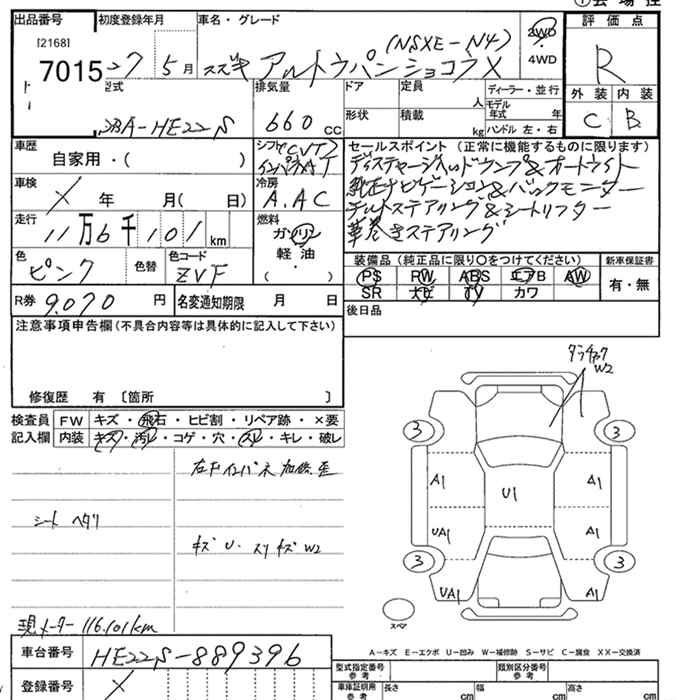 ① 会 場 控
出品番号 初度登録年月 車名・グレード 評 価 点
[2168] (NSXE-N4) 2WD
7015 27 5月 スズキ アルトラパン ショコラX ・ R
4WD
型式 排気量 ドア 定員 ディーラー・並行 外 装 内 装
人 モデル
DBA-HE22S 660 CC 形状 積載 年式 年 C B
kg ハンドル 左・右
車歴 シフト(CVT) セールスポイント (正常に機能するものに限ります)
自家用・( ) インパネAT ディスチャージヘッドランプ&オートライト
車検 冷房 純正ナビゲーション&バックモニター
X 年 月( 日) A.AC チルトステアリング&シートリフター
走行 燃料 革巻きステアリング
11万6千101km ガソリン
軽 油 ・
色 色替 色コード ( ) 装備品 (純正品に限り〇をつけてください) 新車保証書
ピンク ZVF PS RW ABS エアB AW 有・無
R券 9.070 円 名変通知期限 月 日 SR ナビ TV カワ
注意事項申告欄(不具合内容等は具体的に記入して下さい) 後日品
修復歴 有 〔箇所 〕
検査員 FW キズ・飛石・ヒビ割・リペア跡・×要
記入欄 内装 キズ・汚レ・コゲ・穴・スレ・キレ・破レ
W2
右下インパネ 加修 歪
シート ヘタリ
キズ U. スリキズ W2
現メーター 116,101km
3 3
A1 U1 A1
UA1 A1
3 3
UA1 A1
スペア
A-キズ E-エクボ U-凹み W-補修跡 S-サビ C-腐食 XX-交換済
車台番号 HE22S-889396
登録番号 X
型式指定番号 参 考 類別区分番号 参 考
車庫証明用 参 考 長さ cm 幅 cm 高さ cm